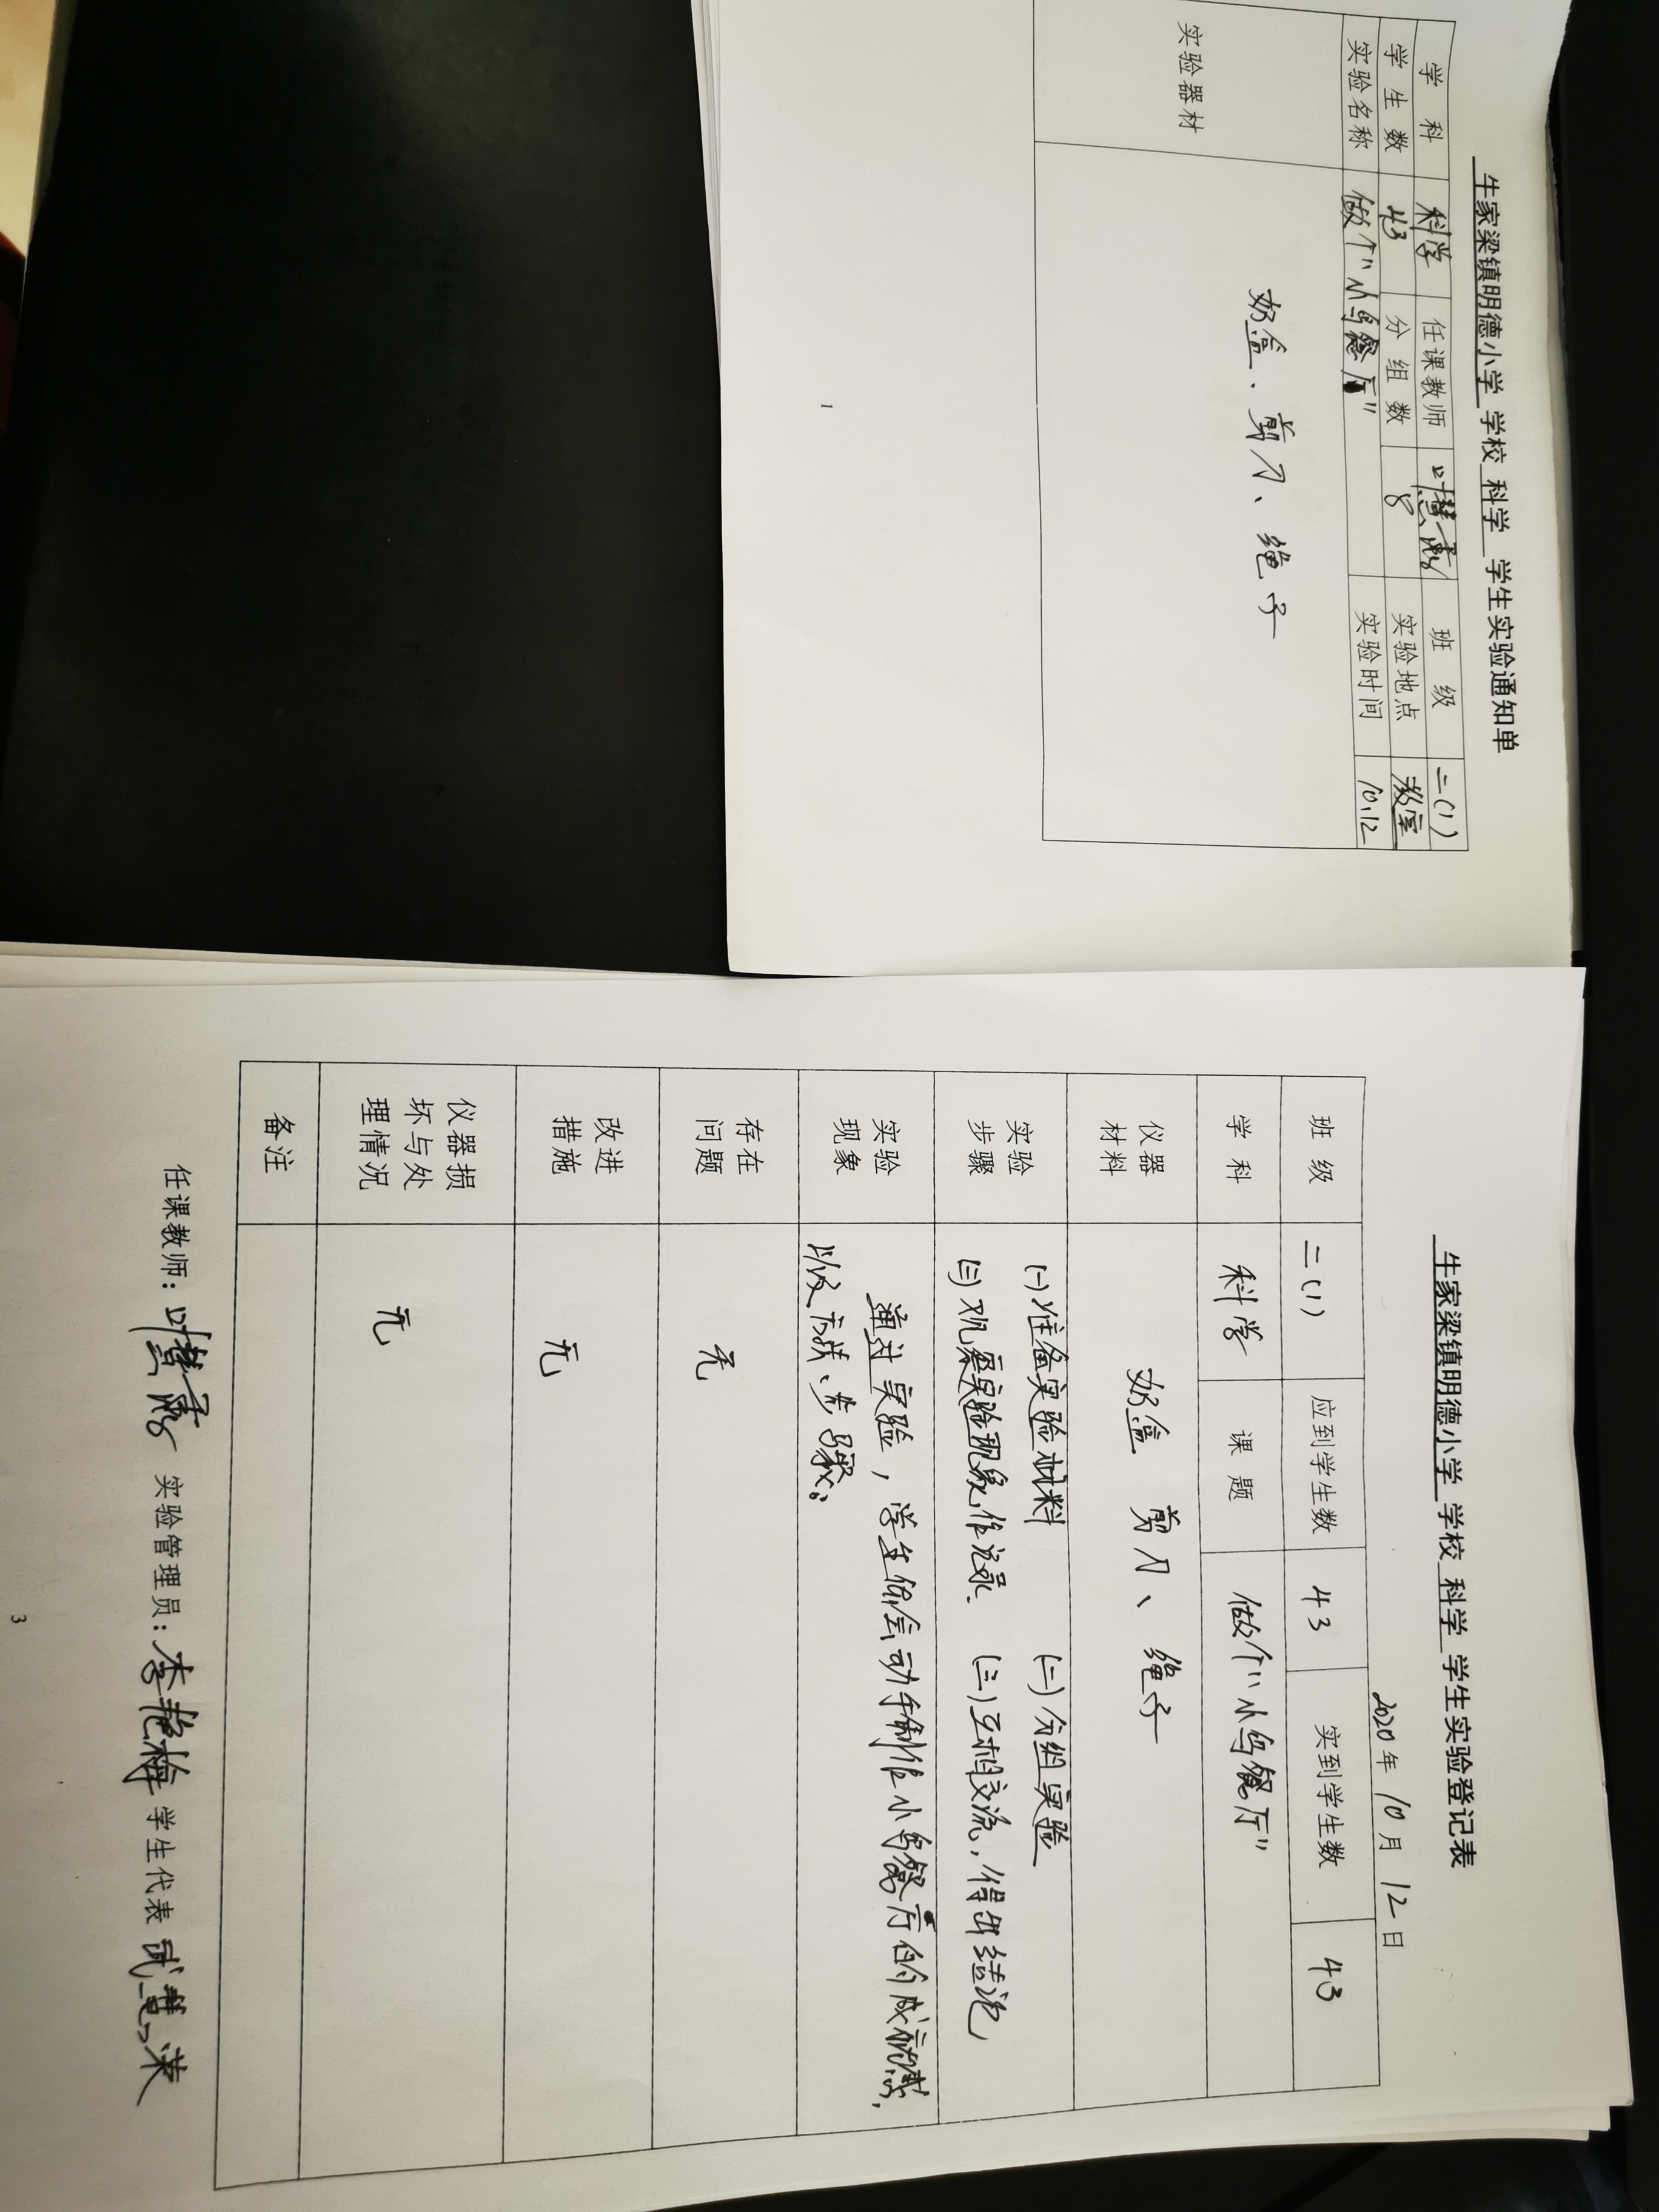 牛家梁镇明德小学 学校 科学 学生实验通知单
学 科 科学 任课教师 叶慧霞 班 级 二(1)
学 生 数 43 分 组 数 8 实验地点 教室
实验名称 做个"小鸟餐厅" 实验时间 10.12
实验器材 奶盒、剪刀、绳子
1
牛家梁镇明德小学 学校 科学 学生实验登记表
2020年 10月 12日
班 级 二(1) 应到学生数 43 实到学生数 43
学 科 科学 课 题 做个"小鸟餐厅"
仪器
材料
奶盒 剪刀、绳子
实验
步骤
(一)准备实验材料 (二)分组实验
(三)观察实验现象,作记录. (三)互相交流,得出结论
实验
现象
通过实验,学生体会动手制作小鸟餐厅的成就感,
以及方法、步骤。
存在
问题
无
改进
措施
无
仪器损
坏与处
理情况
无
备注
任课教师:叶慧霞 实验管理员:李艳梅 学生代表
3